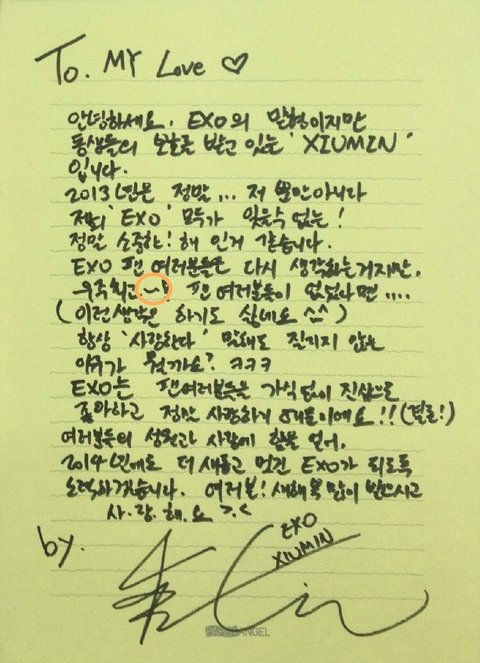 To. MY Love ♡
안녕하세요, EXO의 맏형이지만
동생들의 보호를 받고 있는 'XIUMIN'
입니다.
2013년은 정말... 저 뿐만아니라
저희 'EXO' 모두가 잊을수 없는!
정말 소중한! 해 인거 같습니다.
EXO 팬 여러분들은 다시 생각하는거지만,
우주최고 팬 여러분들이 없었다면....
(이런생각은 하기도 싫네요 ^^)
항상 '사랑한다' 말해도 질리지 않는
이유가 뭘까요? ㅋㅋㅋ
EXO는 팬여러분들을 가식없이 진심으로
좋아하고 정말 사랑하기 때문이에요!! (결론!)
여러분들의 성원과 사랑에 힘을 얻어,
2014년에도 더 새롭고 멋진 EXO가 되도록
노력하겠습니다. 여러분! 새해복 많이 받으시고
사.랑.해.요 >.<
by. EXO
XIUMIN
PAPER ANGEL